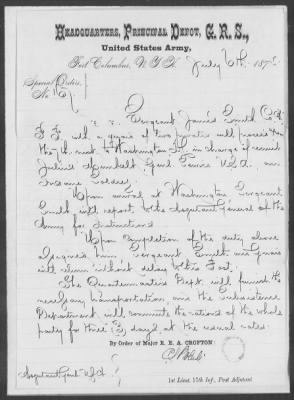 HEADQUARTERS, PRINCIPAL DEPOT, G. R. S.,
United States Army,
Fort Columbus, N. Y. H. July 6th. 187
Special Orders,
No. 
Sergeant James Smith Co
with a guard of two privates will proceed
to Washington in charge of recruit
Julius Genl Service U.S.A. an
insane soldier.
Upon arrival at Washington Sergeant
Smith will report to the Adjutant General of the
Army for instructions
Upon completion of the duty above
assigned him, Sergeant Smith and guard
will return without delay to this Post.
The Quartermasters Dept. will furnish the
necessary transportation, and the Subsistence
Department will commute the rations of the whole
party for three days at the usual rates.
By Order of Major R. E. A. CROFTON:
1st Lieut. 17th Inf., Post Adjutant
Adjutant Genl. U.S.A.